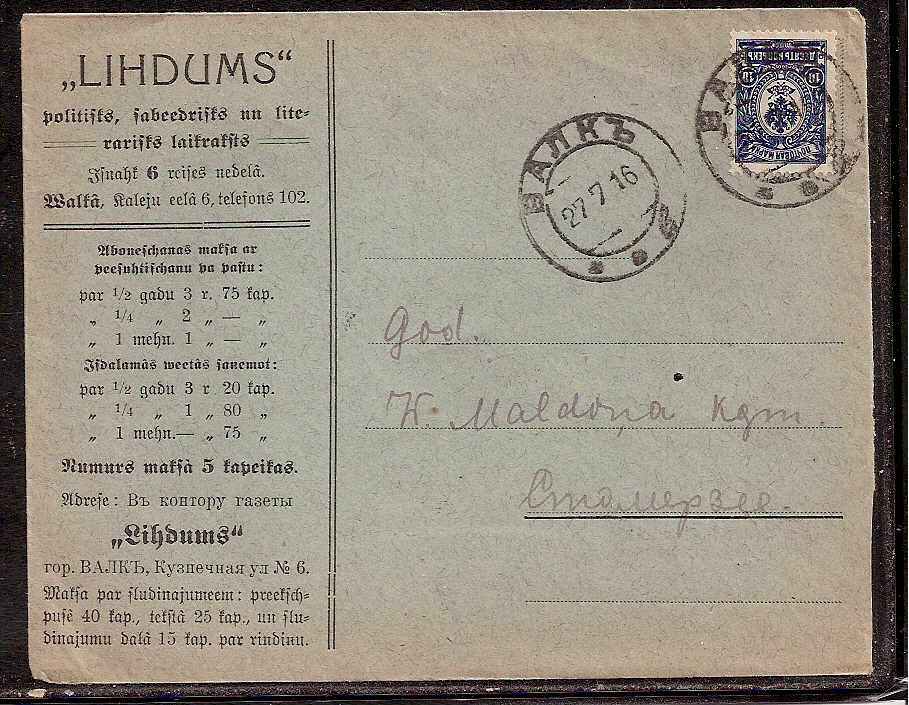 „LIHDUMS“
politisks, sabeedrisks un lite=
rarisks laikraksts
Isnahk 6 reises nedelâ.
Walkâ, Kaleju eelâ 6, telefons 102.
Aboneschanas maksa ar
peesuhtischanu pa pastu:
par 1/2 gadu 3 r. 75 kap.
„ 1/4 „ 2 „ — „
„ 1 mehn. 1 „ — „
Isdalamâs weetâs sanemot:
par 1/2 gadu 3 r 20 kap.
„ 1/4 „ 1 „ 80 „
„ 1 mehn.— „ 75 „
Numurs maksâ 5 kapeikas.
Adrese: Въ контору газеты
„Lihdums“
гор. ВАЛКЪ, Кузнечная ул № 6.
Maksa par sludinajumeem: preeksch=
pusê 40 kap., tekstâ 25 kap., un slu=
dinajumu dalâ 15 kap. par rindinu.
ВАЛКЪ
27 7 16
10 ДЕСЯТЬ КОПѢЕКЪ 10
ПОЧТОВАЯ МАРКА
God.
K. Maldoņa kgm.
Стомерзее.